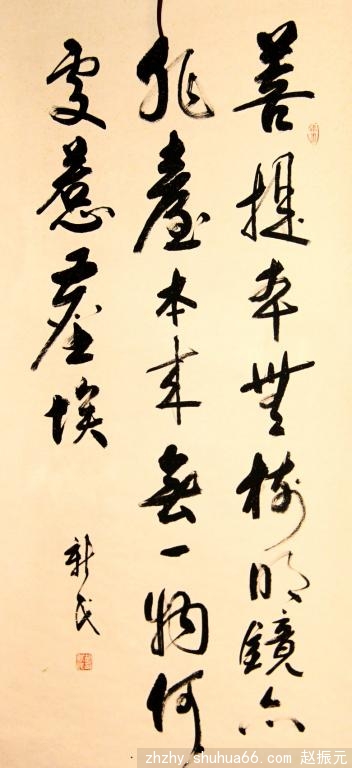 菩提本無樹明鏡亦
非臺本來無一物何
處惹塵埃
新民
zhzhy.shuhua66.com 赵振元